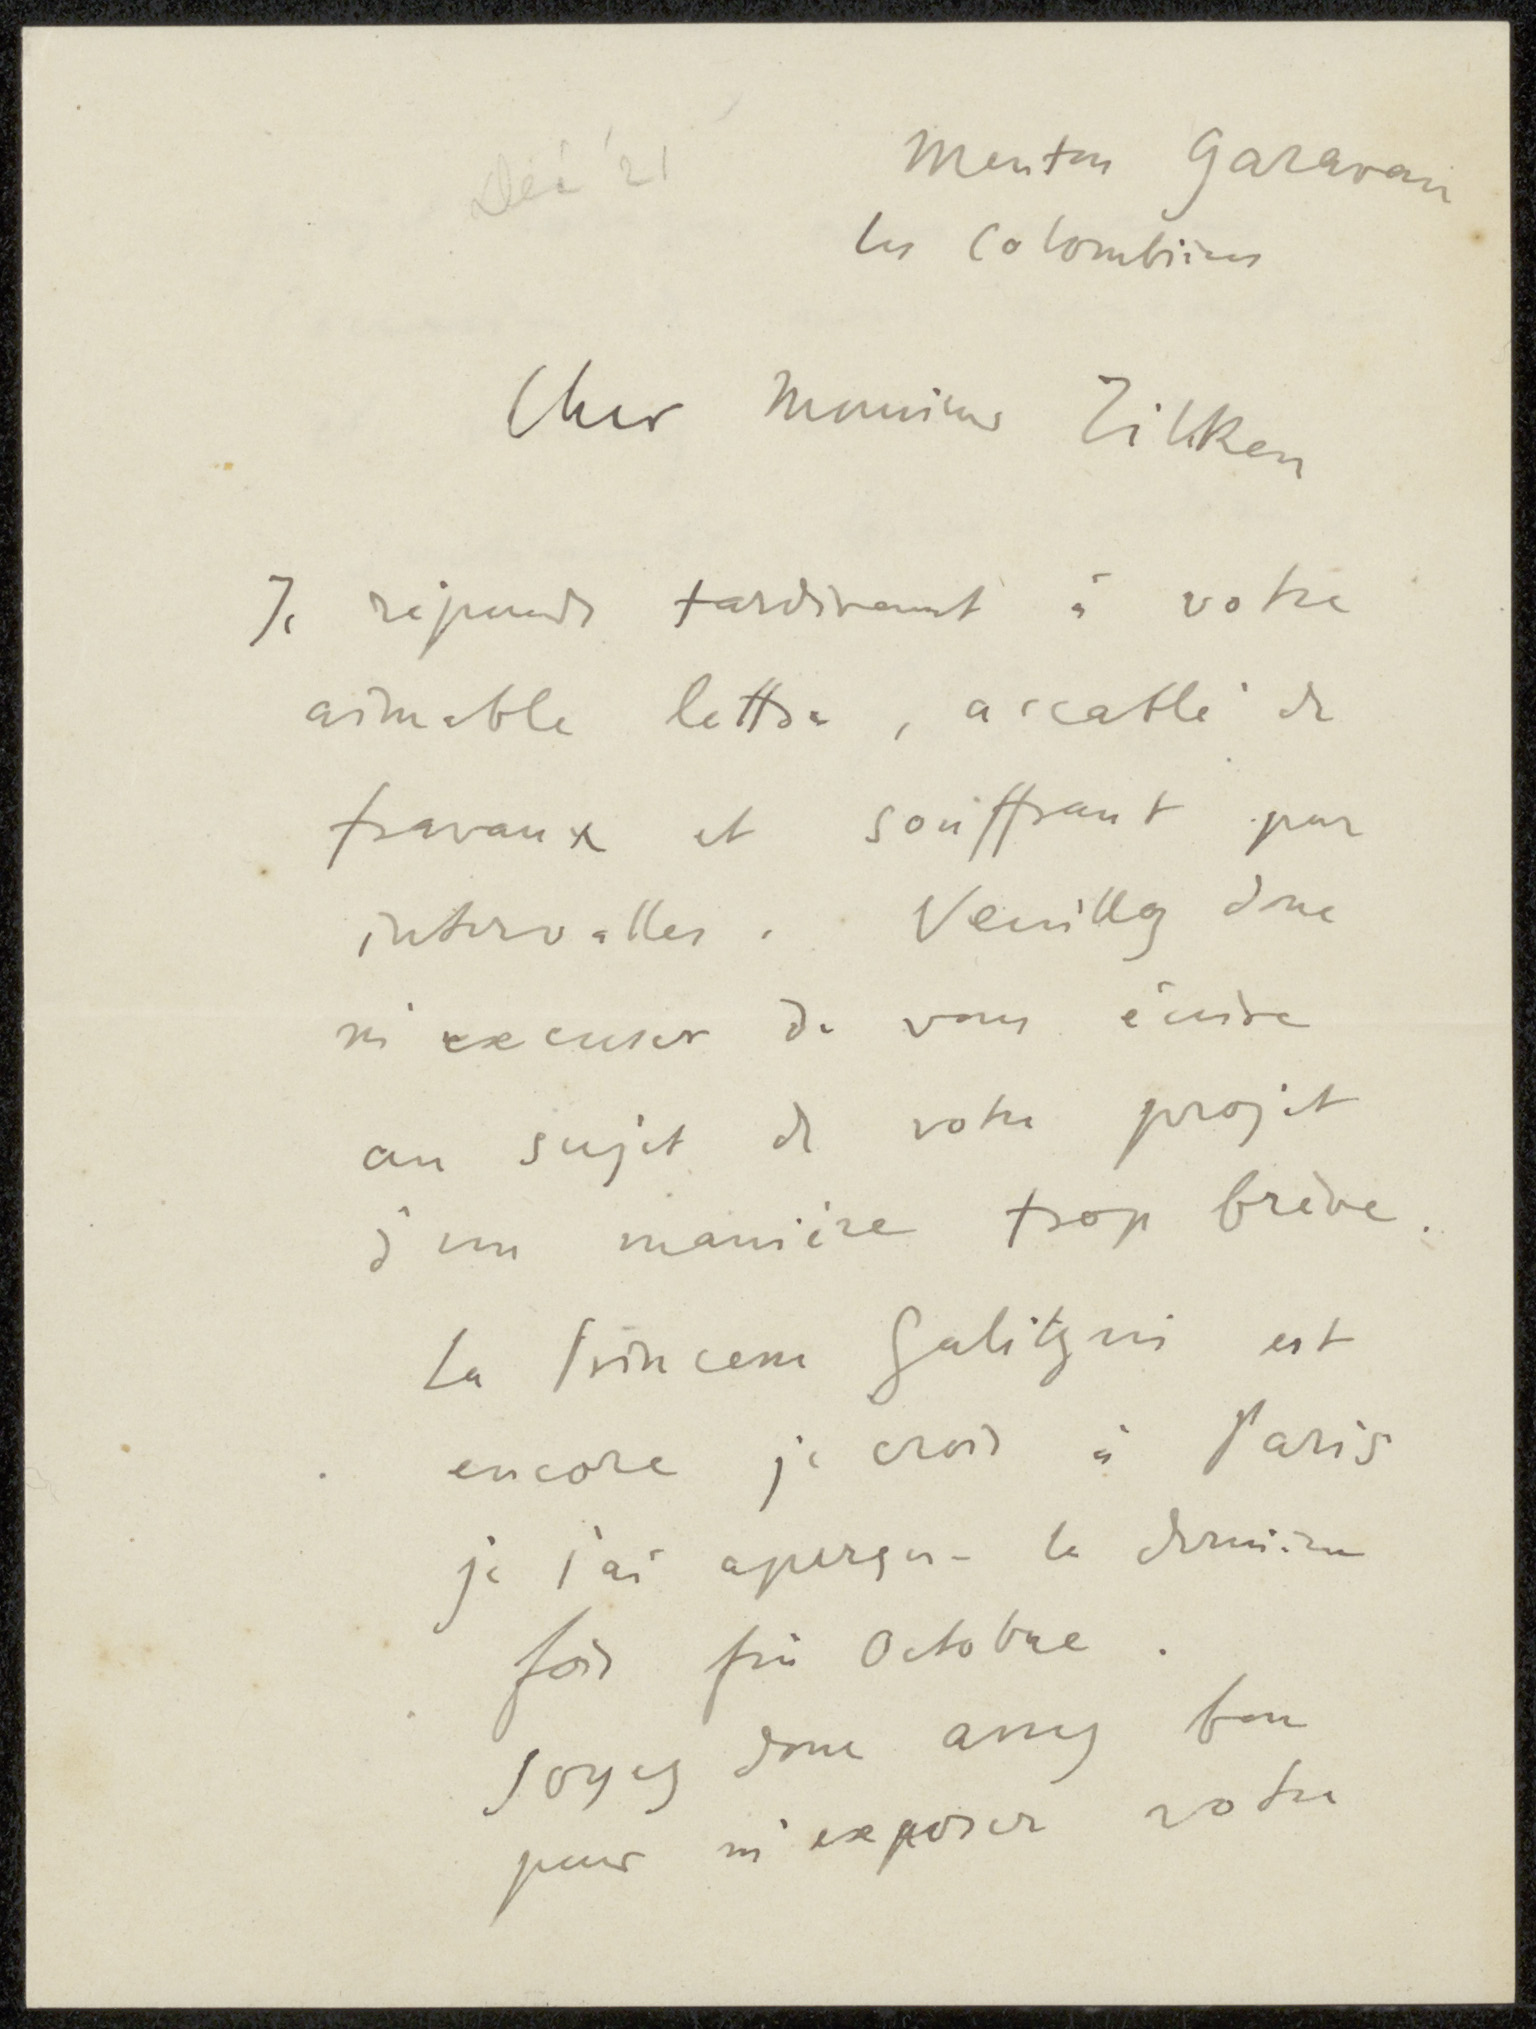 Déc '21
Menton Garavan
les Colombières
Cher Monsieur Zilken
Je réponds tardivement à votre
aimable lettre, accablé de
travaux et souffrant par
intervalles. Veuillez donc
m'excuser de vous écrire
au sujet de votre projet
d'une manière trop brève.
La Princesse Galitzni est
encore je crois à Paris
je l'ai aperçue la dernière
fois fin Octobre.
Soyez donc assez bon
pour m'exposer votre